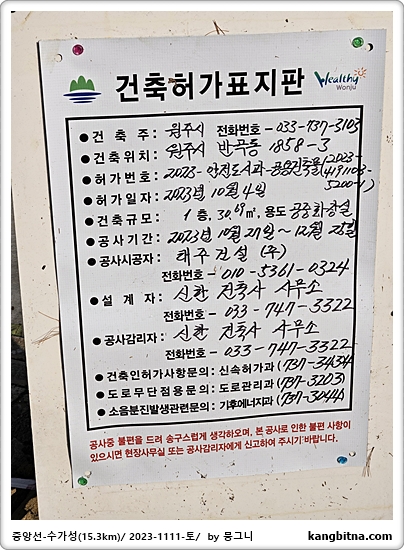 건축허가표지판
Healthy
Wonju
● 건 축 주: 원주시 전화번호 - 033-737-3103
● 건축위치: 원주시 반곡동 1858-3
● 허가번호: 2023-안전도시과-공용건축물(2023-
● 허가일자: 2023년 10월 4일
● 건축규모: 1층, 30.69㎡, 용도 공중화장실
● 공사기간: 2023년 10월 27일 ~ 12월 25일
● 공사시공자: 태주건설 (주)
전화번호 - 010-5361-0324
● 설 계 자: 신한 건축사 사무소
전화번호 - 033-747-3322
● 공사감리자: 신한 건축사 사무소
전화번호 - 033-747-3322
● 건축인허가사항문의: 신속허가과(737-3434)
● 도로무단점용문의: 도로관리과(737-3203)
● 소음분진발생관련문의: 기후에너지과(737-3044)
공사중 불편을 드려 송구스럽게 생각하오며, 본 공사로 인한 불편 사항이
있으시면 현장사무실 또는 공사감리자에게 신고하여 주시기 바랍니다.
중앙선-수가성(15.3km)/ 2023-1111-토/ by 몽그니
kangbitna.com